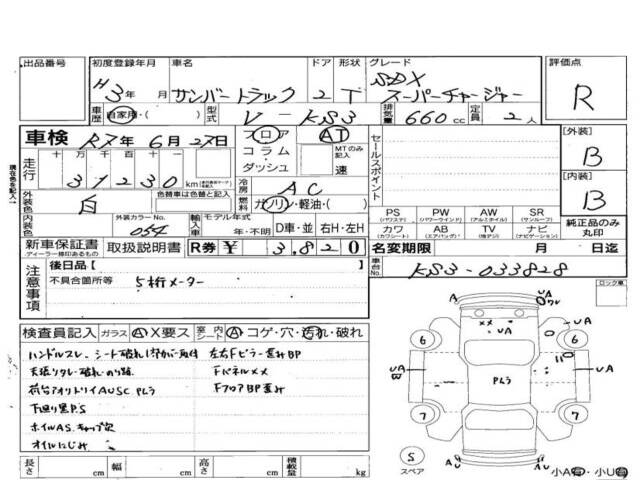 出品番号
初度登録年月 車名 ドア 形状 グレード 評価点
H3年 月 サンバートラック 2 T SDX スーパーチャージャー R
車歴 自家用・( ) 型式 V-KS3 排気量 660cc 定員 2人
車検 R7年6月27日
フロア コラム・ダッシュ AT MTのみ記入 速
セールスポイント
[外装] B
[内装] B
現在色を記入
走行 十万 万 千 百 十 一
31230 km
冷房 AC
外装色 白 色替車は色替と記入
燃料 ガソリン・軽油・( )
内装色 外装カラーNo. 054
輸入車 モデル年式 年・不明 D車・並 右H・左H
PS (パワステ) PW (パワーウインドウ) AW (アルミホイル) SR (サンルーフ)
カワ (カワシート) AB (エアバッグ) TV (地デジ) ナビ (ナビゲーション)
純正品のみ丸印
新車保証書 ディーラー捺印あるもの 取扱説明書 R券 ¥ 3,820
名変期限 月 日迄
注意事項 後日品[ ]
不具合箇所等 5桁メーター
車台No. KS3-033828
ロック車
検査員記入 ガラス A・X要ス 室内 シート A・コゲ・穴・汚れ・破れ
ハンドルスレ、シート破れ
天張リタレ・破れ・のり跡 Fパネルメメ
下廻り黒P.S
ホイルAS.キャップ欠
オイルにじみ
長さ cm 幅 cm 高さ cm 積載量 kg
A
UA
6 6
UA
UA
7 7
S
スペア
AU
AU
小A・小U